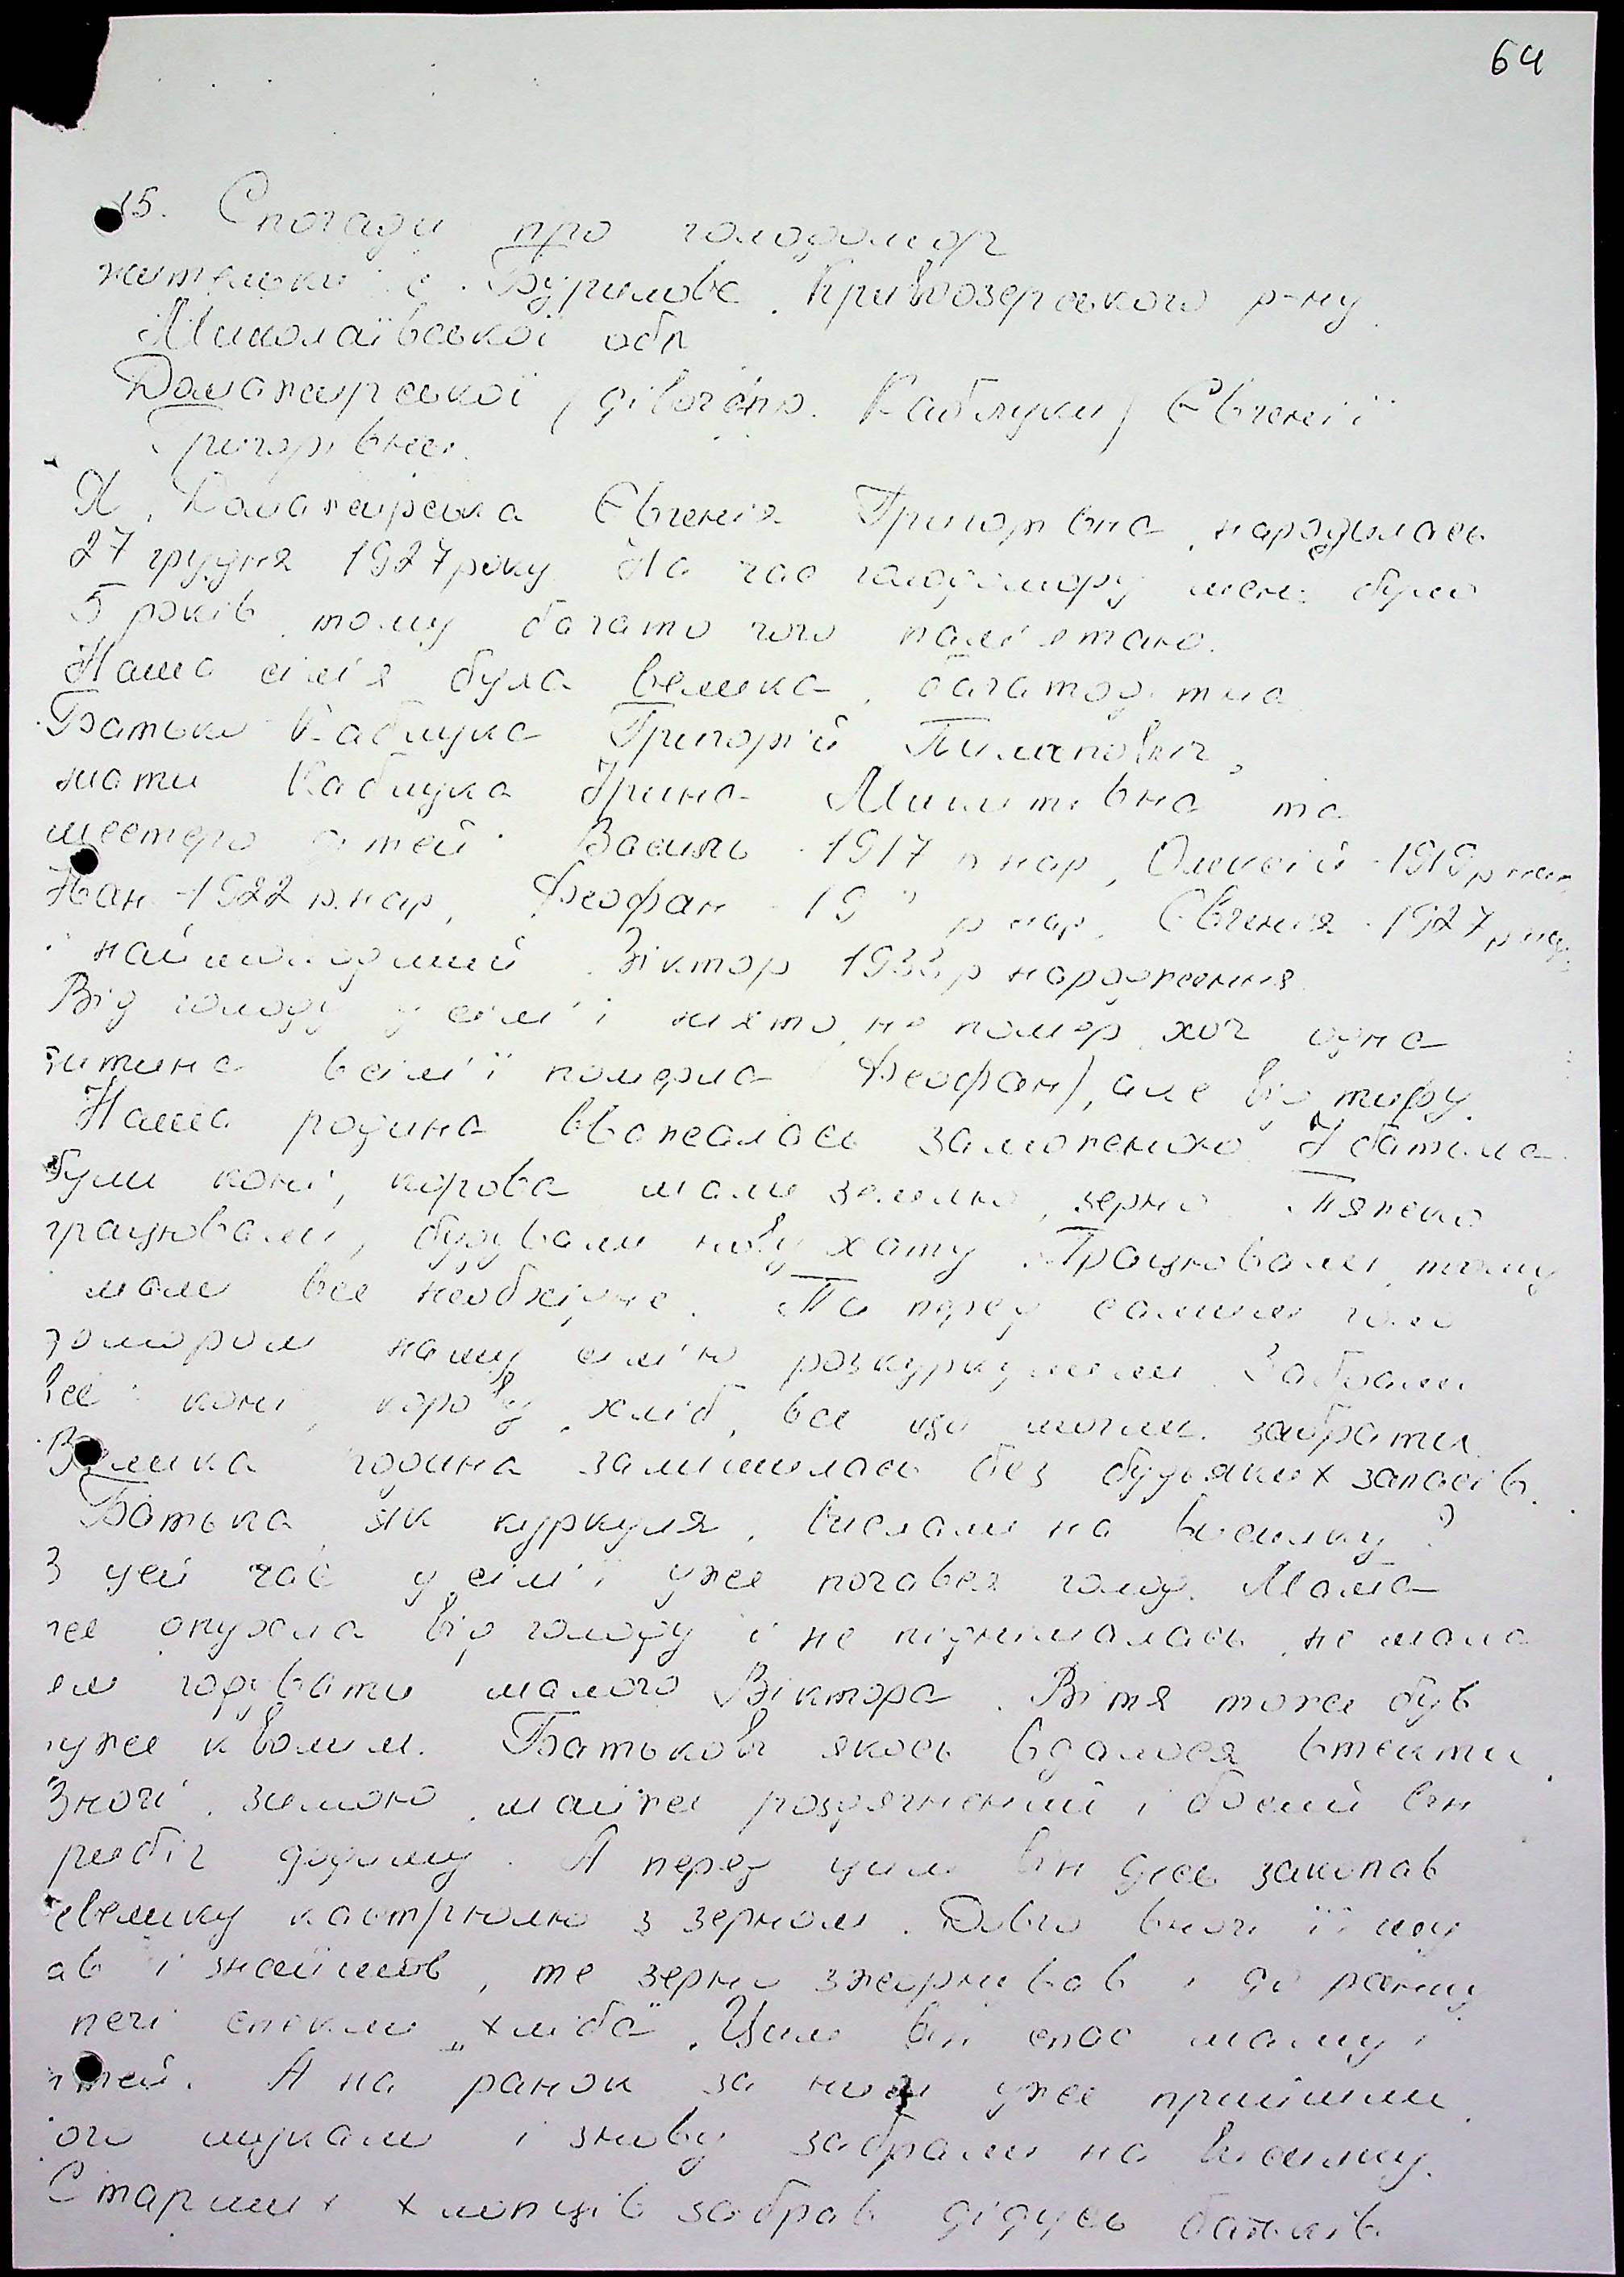 64
15. Спогади про голодомор
жительки с. Бурилове Кривоозерського р-ну
Миколаївської обл
Доманжирської (дівоч. Каблуки) Євгенії
Григорівни.
Я, Євгенія Григорівна, народилась
27 грудня 1927 року На час голодомору мені було
5 років, тому багато чого пам'ятаю.
Наша сім'я була велика, багатодітна
Батько Каблука Григорій Пилипович,
мати Каблука Ірина Микитівна та
шестеро дітей: Василь - 1917 р нар, Олексій - 1919 р нар,
Іван - 1922 р. нар, Феофан - 19 р нар, Євгенія - 1927 р нар,
і наймолодший Віктор р народження
Від голоду у сім'ї ніхто не помер, хоч одна
дитина в сім'ї померла Феофан), але від тифу.
Наша родина вважалась заможною. У батька
були коні, корова мали землю, зерно. Тяжко
працювали, будували нову хату. Працювали, тому
мали все необхідне. Та перед самим голо
домором нашу сім'ю розкуркулили. Забрали
все: коні, корову, хліб, все що могли забрати.
Велика родина залишилась без будьяких запасів.
Батька, як куркуля, вислали на висилку?
В цей час у сім'ї уже почався голод. Мама
же опухла від голоду і не піднімалась, не мала
чим годувати малого Віктора. Вітя тоже був
дуже кволим. Батькові якось вдалося втекти.
Вночі, зимою, майже роздягнений і босий він
прибіг додому. А перед цим він десь закопав
невелику каструлю з зерном. Довго вночі її шу
кав і знайшов, те зерно зжорнував і до ранку
печі спекли „хліба". Цим він спас маму і
дітей. А на ранок за ним уже прийшли.
його шукали і знову забрали на висилку.
Старших хлопців забрав дідусь батьків